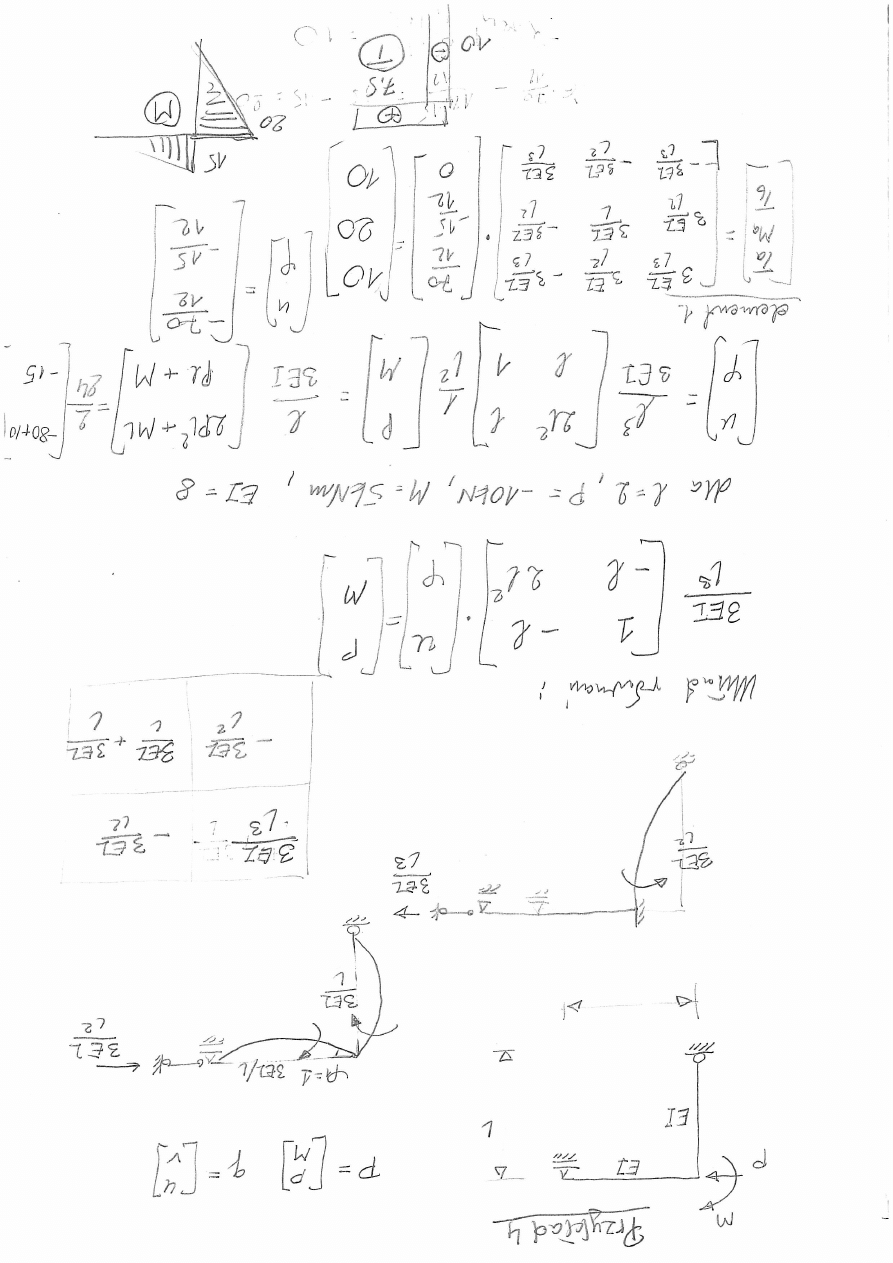 Przykład 4
M
P
EI
EI
L
P = [P M] q = [u v]
φ=1 3EI/L
3EI/L
3EI/L²
3EI/L²
3EI/L³
3EI/L³ -3EI/L²
-3EI/L² 3EI/L + 3EI/L
Układ równań:
3EI/L³ [1 -l; -l 2l²] · [u; φ] = [P; M]
dla l = 2, P = -10kN, M = 5kNm, EI = 8
[u; φ] = l³/3EI [2l² l; l 1] 1/l² [P; M] = l/3EI [2Pl² + Ml; Pl + M] = 2/24 [-80+10; -15]
element 1
[Ta; Ma; Tb] = [3EI/L³ 3EI/L² -3EI/L³; 3EI/L² 3EI/L -3EI/L²; -3EI/L³ -3EI/L² 3EI/L³] · [70/12; -15/12; 0] = [10; 20; 10]
[u; φ] = [-70/12; -15/12]
15
20
M
7,5
T
10